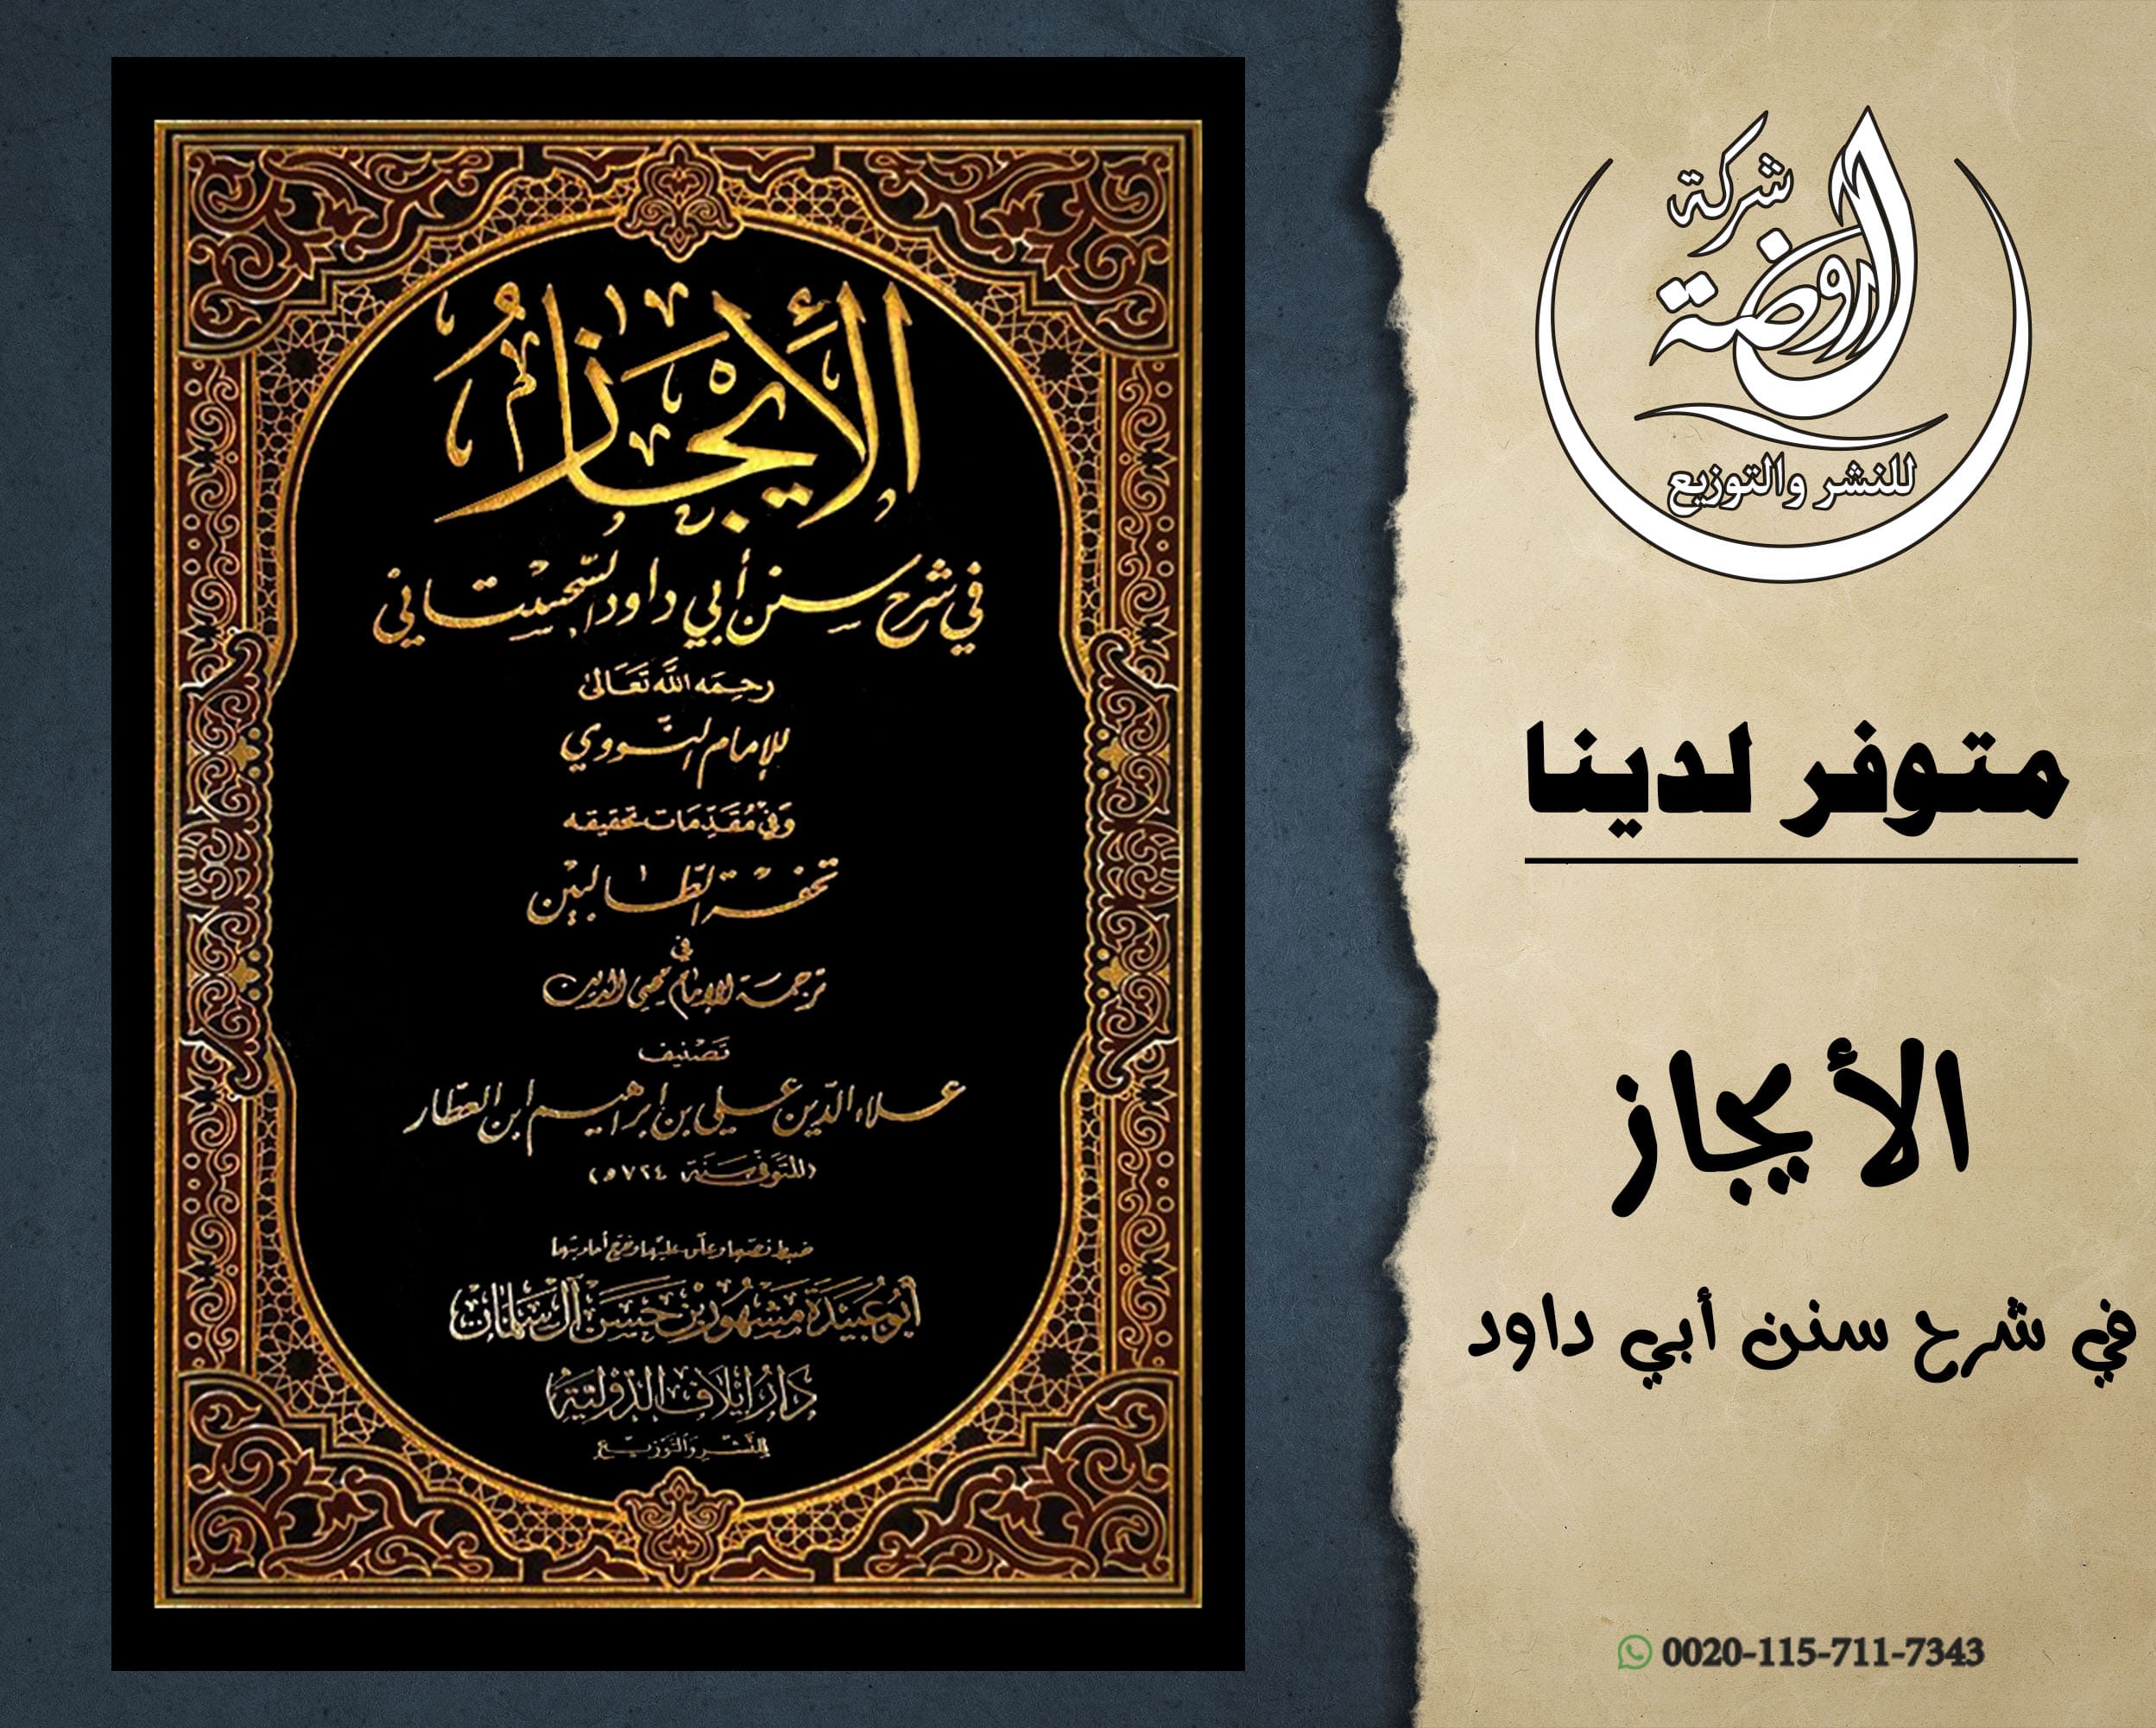 الأيجاز
في شرح سنن أبي داود السجستاني
رحمه الله تعالى
للإمام النووي
وفي مقدمات تحقيقه
تحفة الطالبين
في
ترجمة الإمام محيي الدين
تصنيف
علاء الدين علي بن إبراهيم ابن العطار
(المتوفى سنة ٧٢٤ هـ)
ضبط نصها وعلق عليها وخرج أحاديثها
أبو عبيدة مشهور بن حسن آل سلمان
دار إيلاف الدولية
للنشر والتوزيع
شركة
الروضة
للنشر والتوزيع
متوفر لدينا
الأيجاز
في شرح سنن أبي داود
0020-115-711-7343